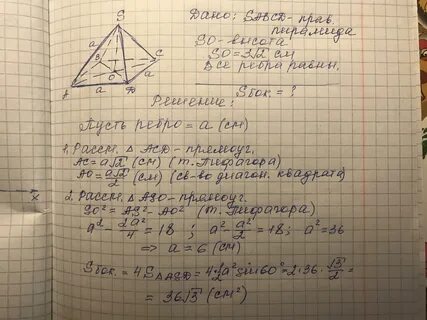 S
a
a
B
C
O
A
a
D
Дано: SABCD - прав.
пирамида
SO - высота
SO = 3√2 см
Все ребра равны.
Sбок. = ?
Решение:
Пусть ребро = a (см)
1. Рассм. △ ACD - прямоуг.
AC = a√2 (см) (т. Пифагора)
AO = a√2/2 (см) (св-во диагон. квадрата)
2. Рассм. △ ASO - прямоуг.
SO² = AS² - AO² (т. Пифагора)
a² - 2a²/4 = 18 ; a² - a²/2 = 18; a² = 36
=> a = 6 (см)
Sбок. = 4 S△ASD = 4·½a² sin60° = 2·36·√3/2 =
= 36√3 (см²)
x